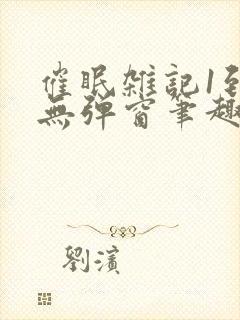 催眠雑記1到
無彈窗筆趣
劉濱